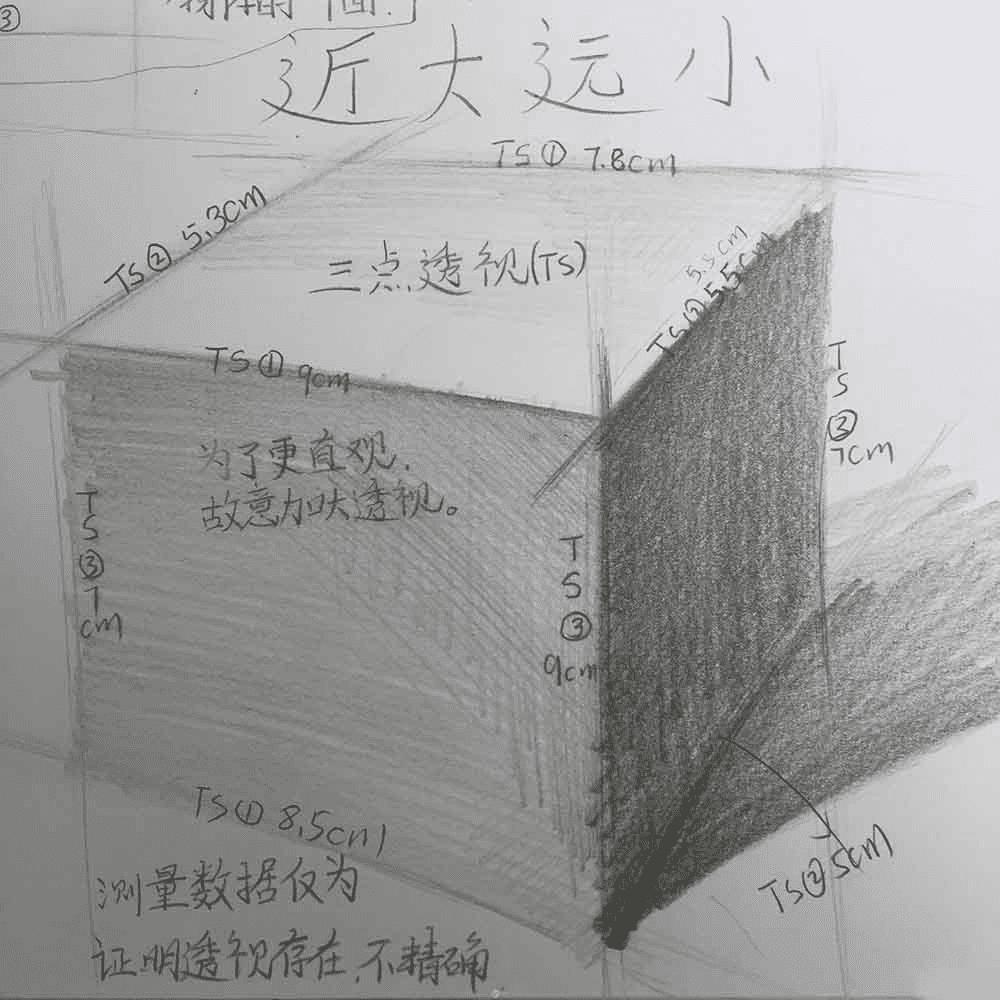 ③
物体的面.
近大远小
TS① 7.8cm
TS② 5,3cm
三点透视(TS)
5.5cm
TS② 5,5cm
TS① 9cm
TS③ 7cm
为了更直观,
故意加吠透视。
TS③ 7cm
TS③ 9cm
TS① 8,5cm
TS② 5cm
测量数据仅为
证明透视存在,不精确